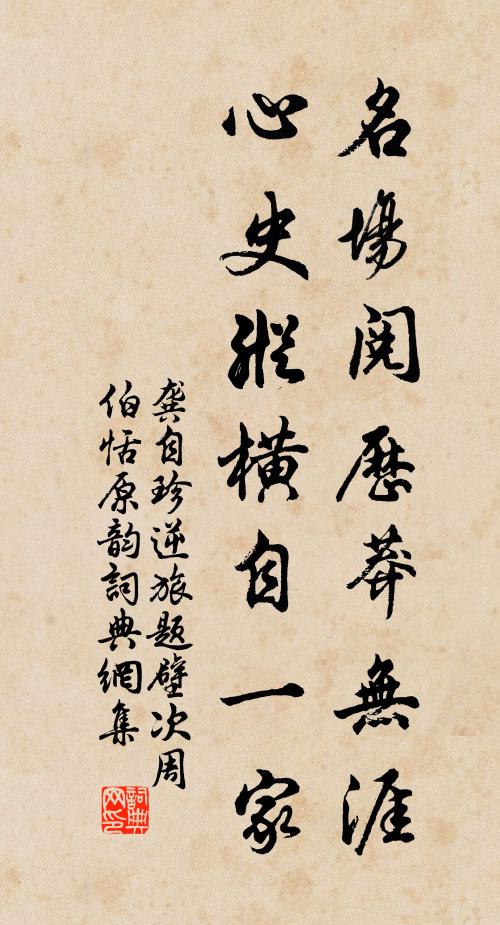 名場閱歷莽無涯
心史縱橫自一家
龔自珍逆旅題壁次周
伯恬原韵詞典網集
詞典网印